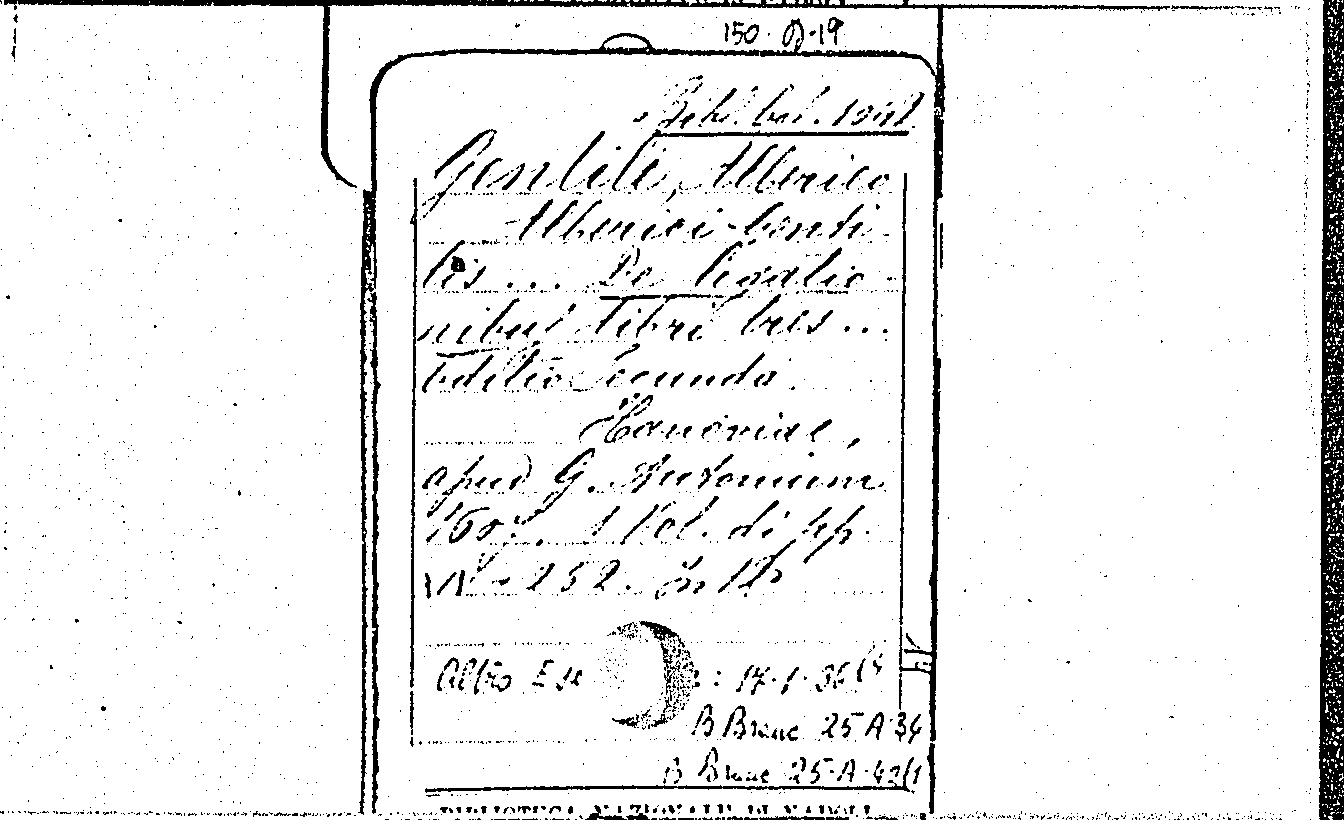 150. Q.19
Bibl. bel.
Gentili, Alberico
Alberici Genti
lis... De legatio-
nibus Libri tres...
Editio Secunda.
Hanoviae,
apud G. Antonium
1607. 1 Vol. di pp.
VI - 252. in 12º
Altro Ese : 17.1.36(4
B Branc 25 A 34
B Branc 25-A-42(1
BIBLIOTECA NAZIONALE DI NAPOLI